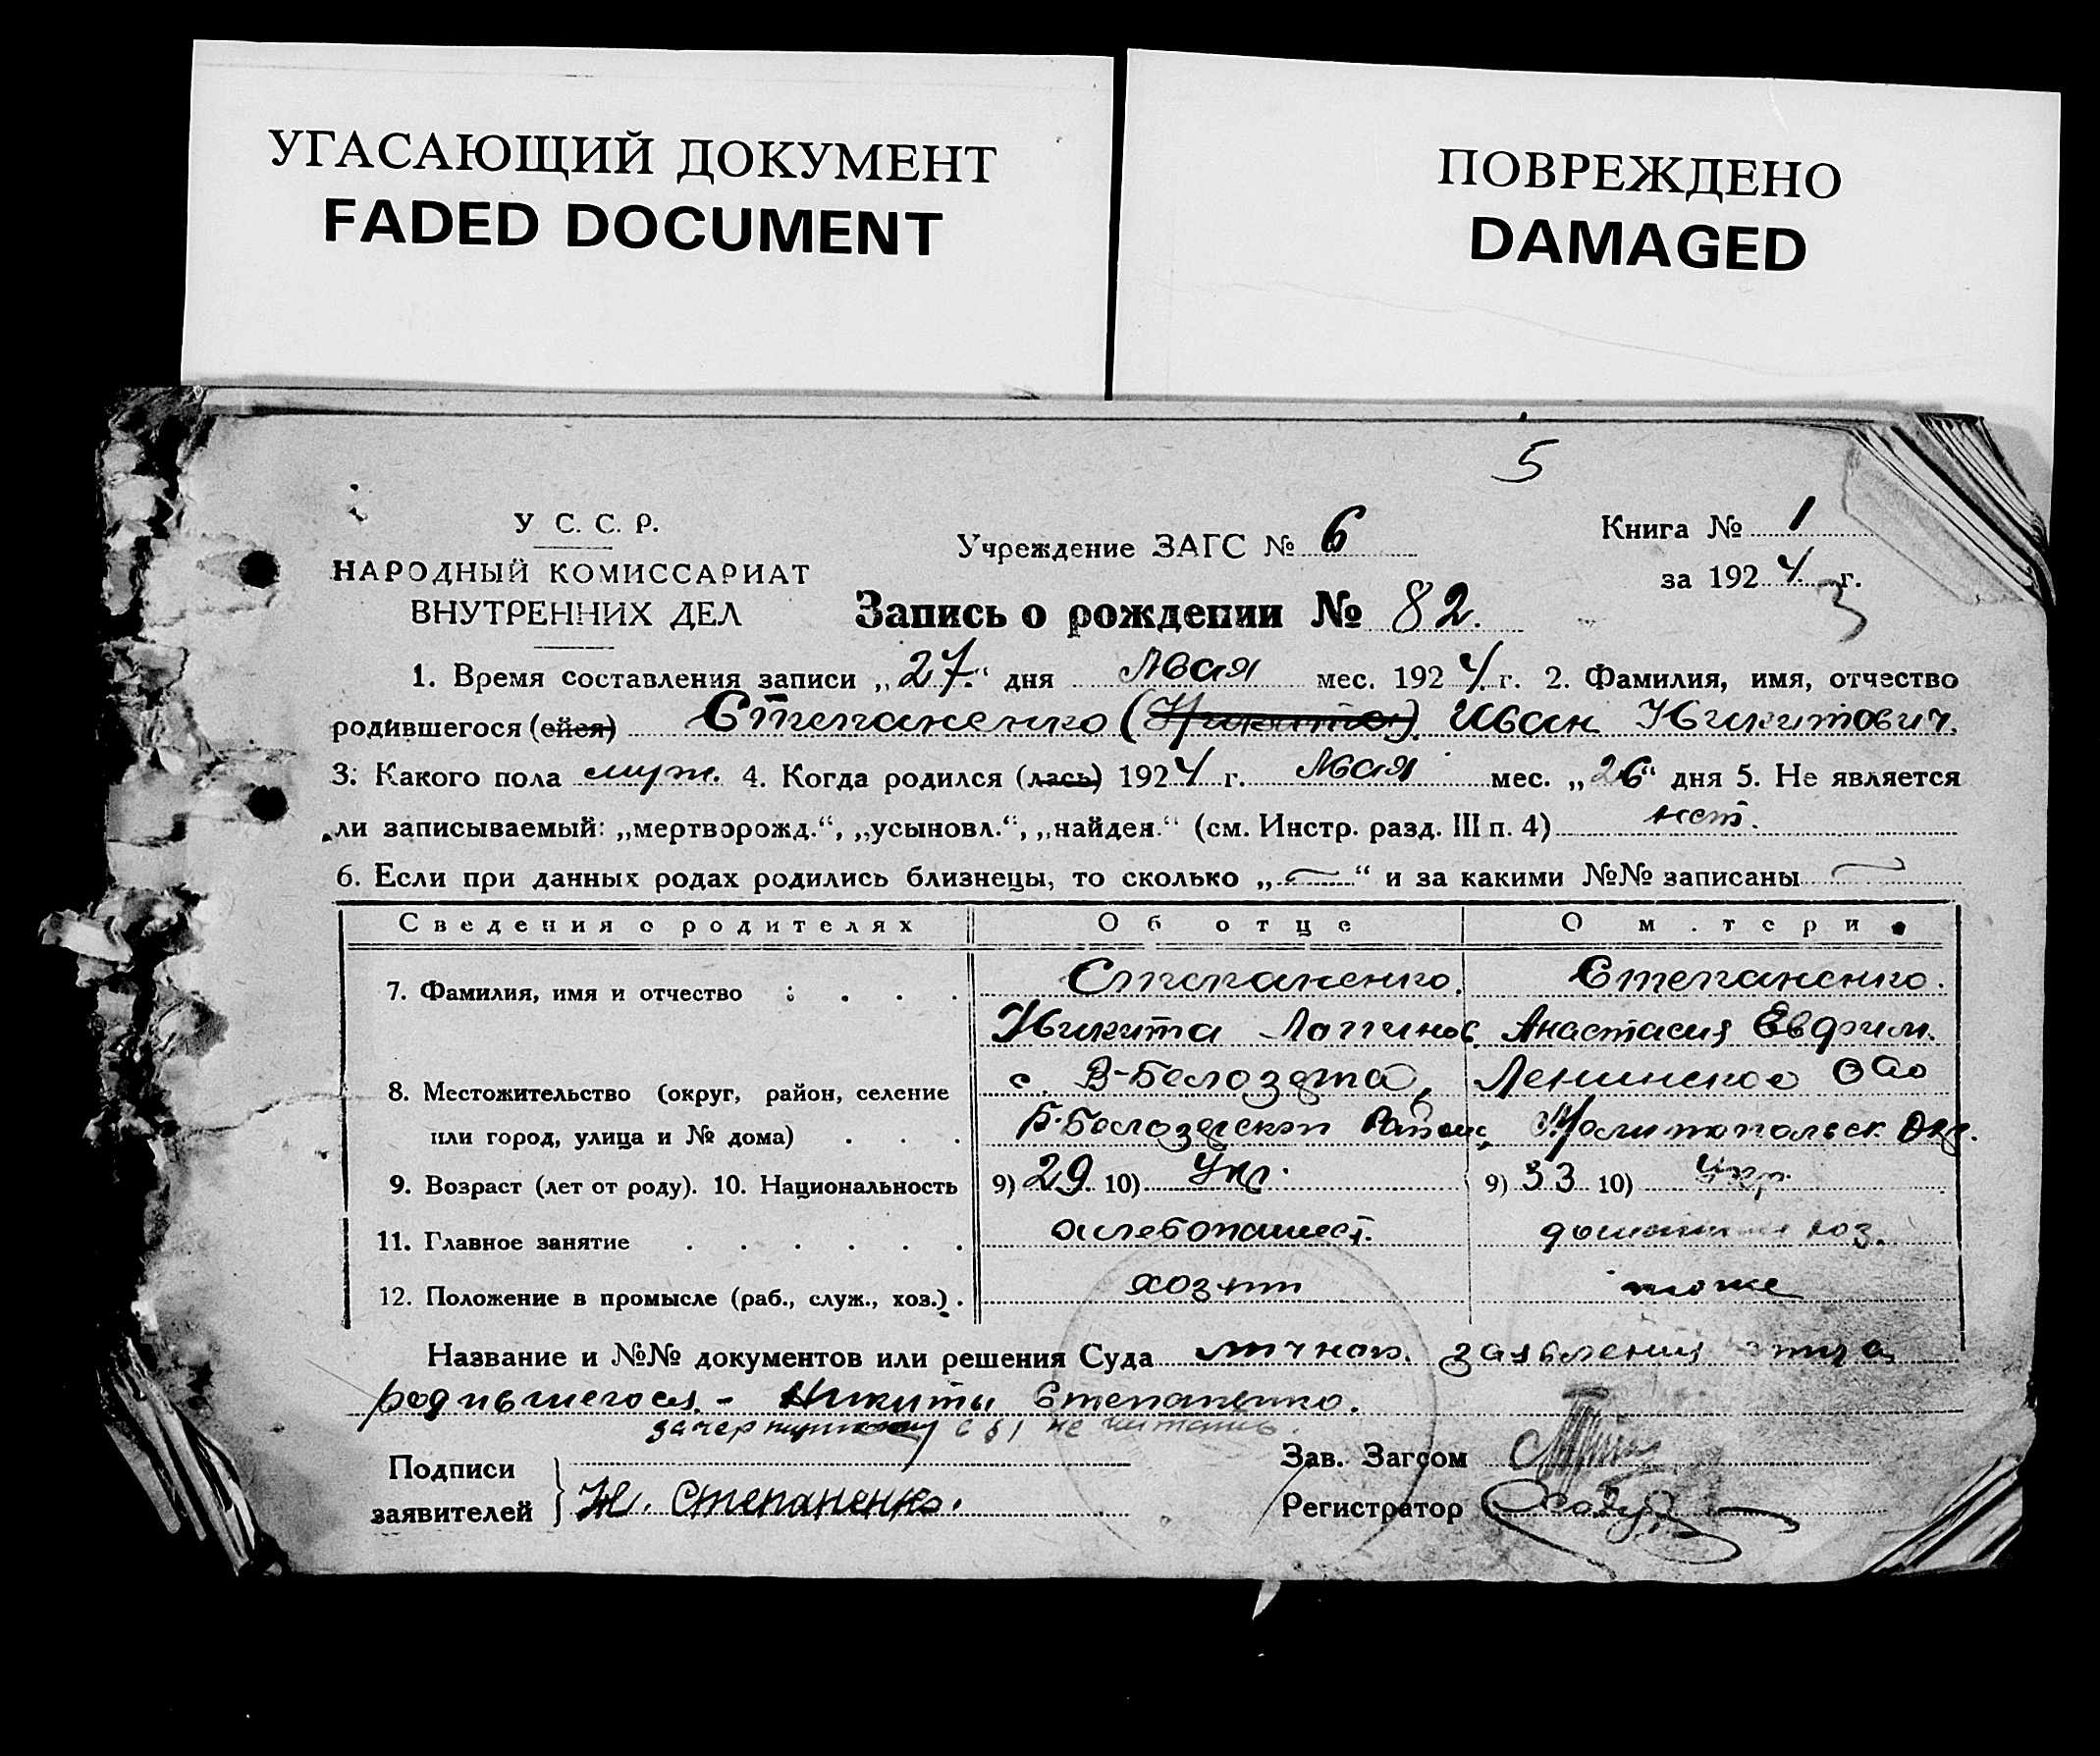 УГАСАЮЩИЙ ДОКУМЕНТ
FADED DOCUMENT
ПОВРЕЖДЕНО
DAMAGED
5
У С. С. Р.
НАРОДНЫЙ КОМИССАРИАТ
ВНУТРЕННИХ ДЕЛ
Учреждение ЗАГС № 6
Книга № 1
за 1924 г.
3
Запись о рождении № 82.
1. Время составления записи „27.“ дня Мая мес. 1924 г. 2. Фамилия, имя, отчество
родившегося (ейся) Степаненко (Никита) Иван Никитович.
3. Какого пола муж. 4. Когда родился (лась) 1924 г. Мая мес. „26“ дня 5. Не является
ли записываемый: „мертворожд.“, „усыновл.“, „найден.“ (см. Инстр. разд. III п. 4) нет.
6. Если при данных родах родились близнецы, то сколько „—“ и за какими №№ записаны —
Сведения о родителях Об отце О м.тери
7. Фамилия, имя и отчество Степаненко. Степаненко.
Никита Анастасия Евфим.
8. Местожительство (округ, район, селение с. В-Белозерка, Ленинское
или город, улица и № дома) Б-Белозерской Района, Мелитопольск. Окр.
9. Возраст (лет от роду). 10. Национальность 9) 29 10) Укр. 9) 33 10) Укр.
11. Главное занятие хлебопашест. домашн хоз.
12. Положение в промысле (раб., служ., хоз.) хозяин тоже
Название и №№ документов или решения Суда личное. заявления отца
родившегося - Никиты Степаненко.
не читать.
Подписи
заявителей Н. Степаненко.
Зав. Загсом
Регистратор